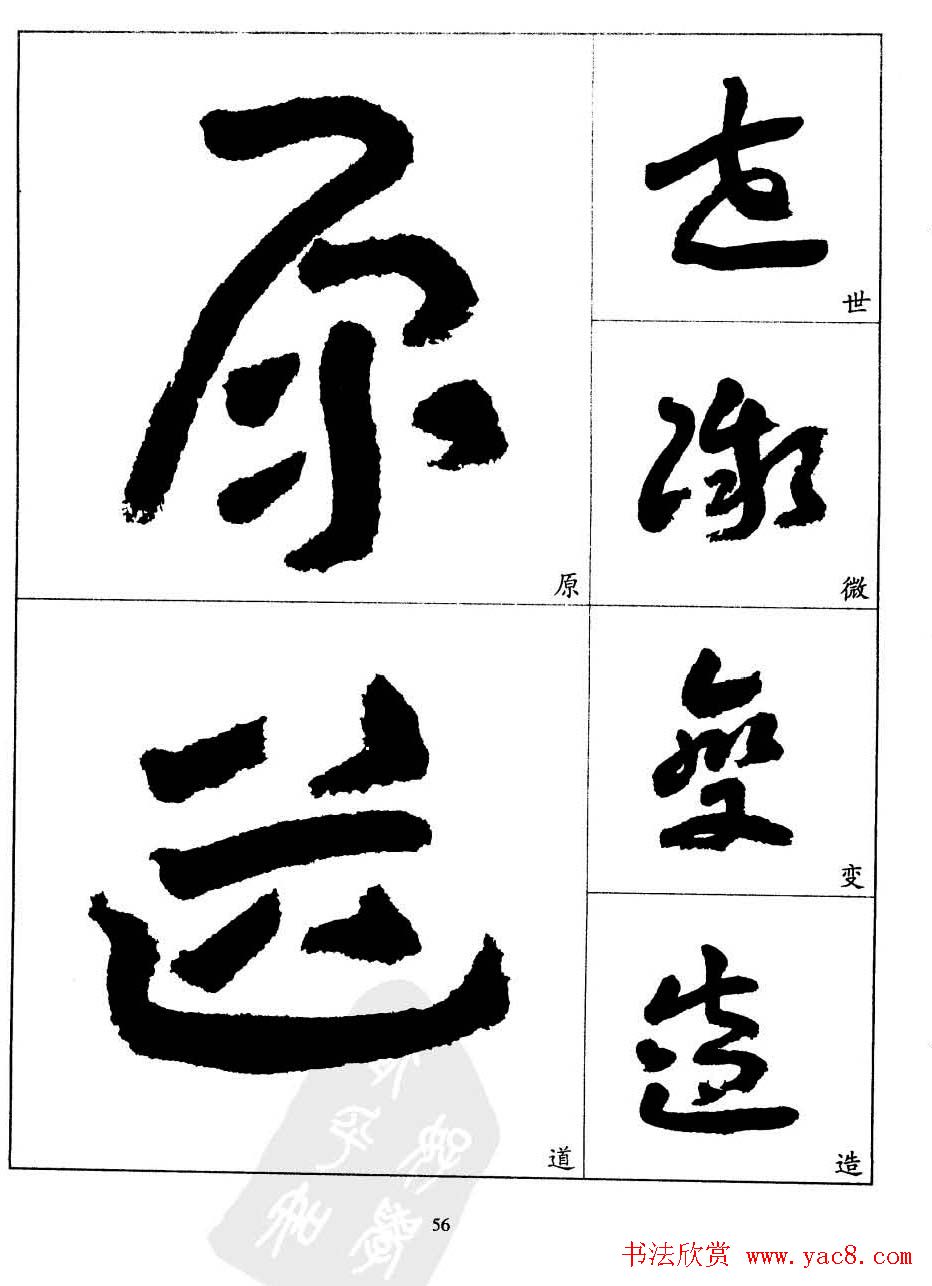 世
微
变
造
原
道
56
书法欣赏 www.yac8.com